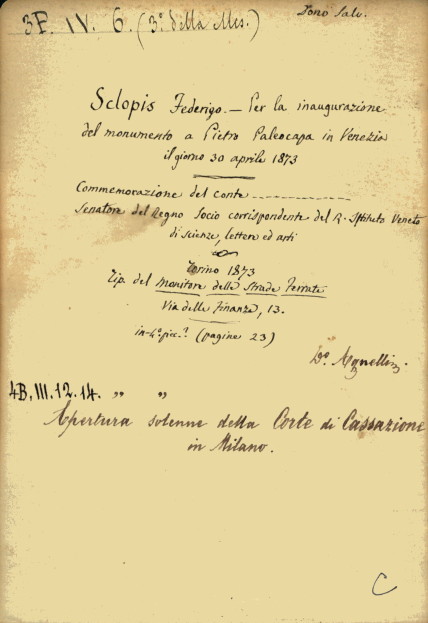 3F. IV. 6. (3º della Mis.)
Dono Salv.
Sclopis Federigo. — Per la inaugurazione
del monumento a Pietro Paleocapa in Venezia
il giorno 30 aprile 1873
Commemorazione del conte
Senatore del Regno Socio corrispondente del R. Istituto Veneto
di scienze, lettere ed arti
Torino 1873
Tip. del Monitore delle Strade Ferrate
Via delle Finanze, 13.
in-4º picc.º (pagine 23)
Dº. Agnelli
4B. III. 12. 14. „ „
Apertura solenne della Corte di Cassazione
in Milano.
C